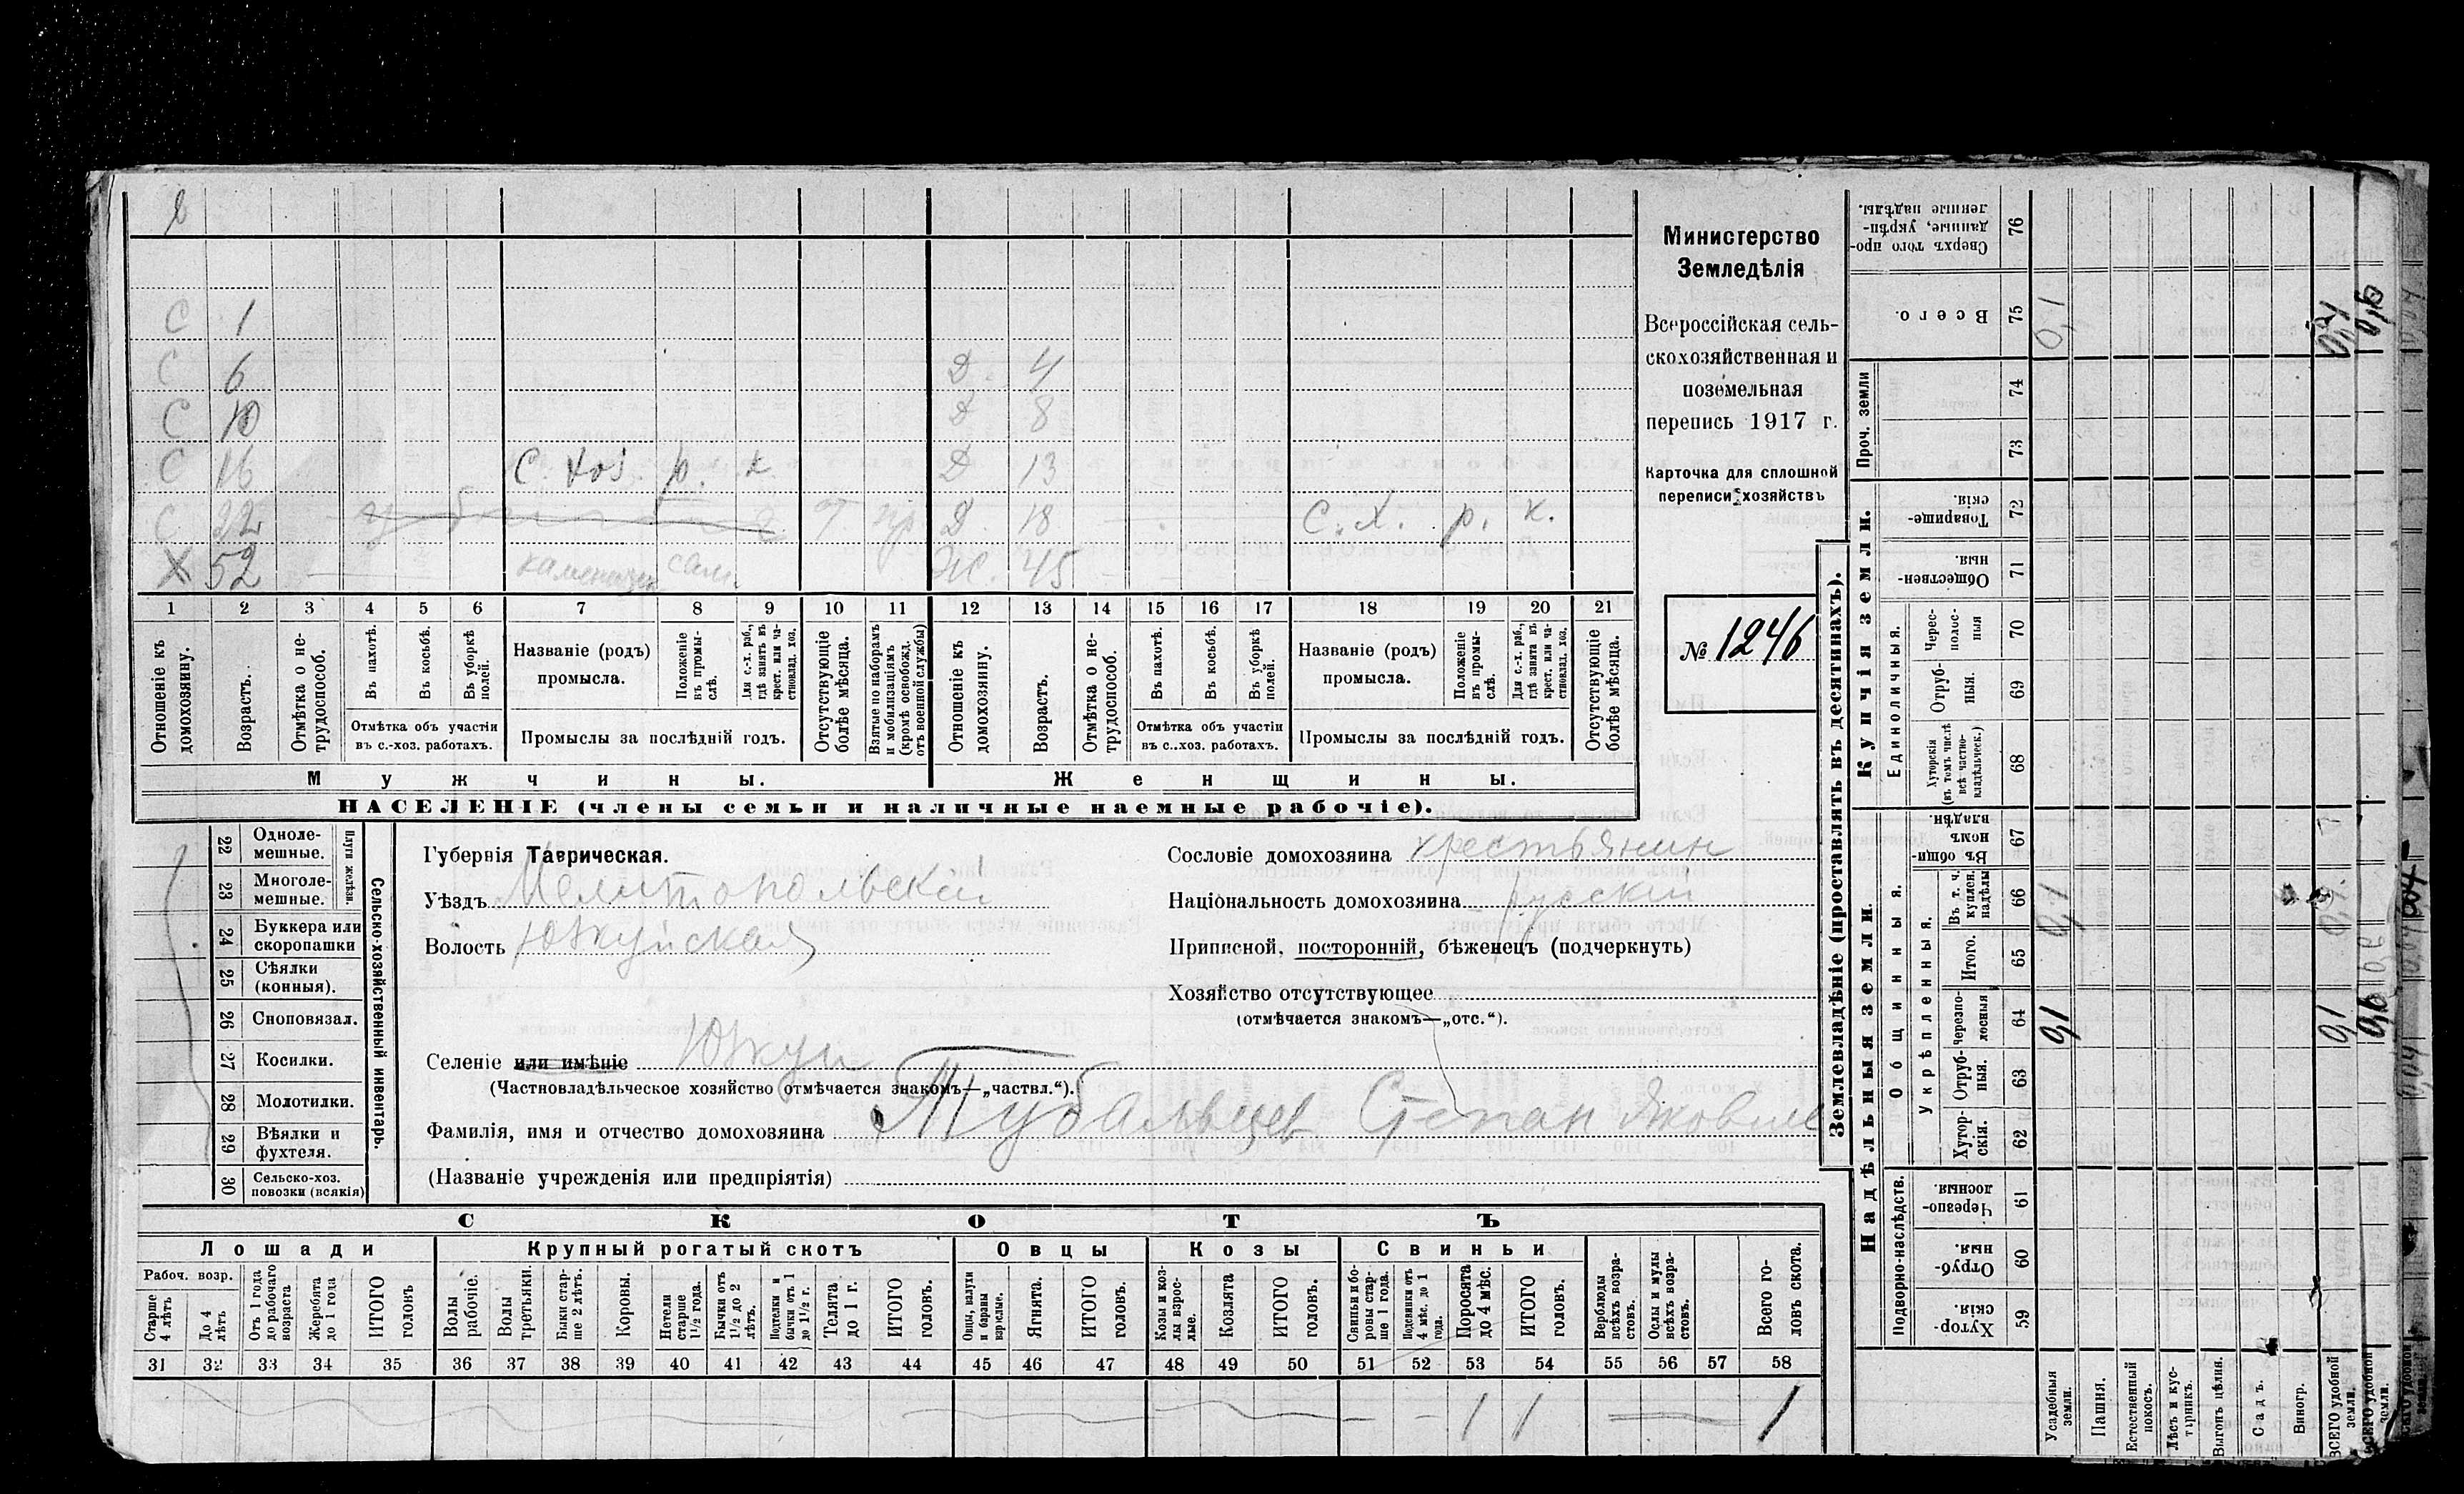 С 1
С 6 Д. 4
С 10 Д 8
С 16 С. хоз. р. к. Д 13
С 22 Д. 18 С. Х. р. к.
Х 52 каменщик сам. Ж. 45
1 2 3 4 5 6 7 8 9 10 11 12 13 14 15 16 17 18 19 20 21
Отношеніе къ домохозяину.
Возрастъ.
Отмѣтка о не-трудоспособ.
Въ пахотѣ.
Въ косьбѣ.
Въ уборкѣ полей.
Отмѣтка объ участіи
въ с.-хоз. работахъ.
Названіе (родъ)
промысла.
Положеніе въ промы-слѣ.
Для с.-х. раб., гдѣ занятъ въ крест. или ча-стновлад. хоз.
Промыслы за послѣдній годъ.
Отсутствующіе болѣе мѣсяца.
Взятые по наборамъ и мобилизаціямъ (кромѣ освобожд. отъ военной службы)
Отношеніе къ домохозяину.
Возрастъ.
Отмѣтка о не-трудоспособ.
Въ пахотѣ.
Въ косьбѣ.
Въ уборкѣ полей.
Отмѣтка объ участіи
въ с..хоз. работахъ.
Названіе (родъ)
промысла.
Положеніе въ промы-слѣ.
Для с.-х. раб., гдѣ занята въ крест. или ча-стновлад. хоз.
Промыслы за послѣдній годъ.
Отсутствующіе болѣе мѣсяца.
Мужчины. Женщины.
НАСЕЛЕНІЕ (члены семьи и наличные наемные рабочіе).
Министерство
Земледѣлія
Всероссійская сель-
скохозяйственная и
поземельная
перепись 1917 г.
Карточка для сплошной
переписи хозяйствъ
№ 1246
Сельско-хозяйственный инвентарь.
Плуги желѣзн.
22 Одноле-мешные.
23 Многоле-мешные.
24 Буккера или скоропашки
25 Сѣялки (конныя).
26 Сноповязал.
27 Косилки.
28 Молотилки.
29 Вѣялки и фухтеля.
30 Сельско-хоз. повозки (всякія)
Губернія Таврическая.
Уѣздъ Мелитопольскій
Волость Юзкуйская
Селеніе или имѣніе Юзкуи
(Частновладѣльческое хозяйство отмѣчается знакомъ—„частвл.“).
Фамилія, имя и отчество домохозяина Тубальцев Степан Яковле
(Названіе учрежденія или предпріятія)
Сословіе домохозяина крестьянин
Національность домохозяина русскій
Приписной, посторонній, бѣженецъ (подчеркнуть)
Хозяйство отсутствующее
(отмѣчается знакомъ—„отс.“).
СКОТЪ
Лошади Крупный рогатый скотъ Овцы Козы Свиньи
Рабоч. возр.
Старше 4 лѣтъ
До 4 лѣтъ
Отъ 1 года до рабочаго возраста
Жеребята до 1 года
ИТОГО головъ
Волы рабочіе.
Волы третьяки.
Быки стар-ше 2 лѣтъ.
Коровы.
Нетели старше 1½ года.
Бычки отъ 1½ до 2 лѣтъ.
Подтелки и бычки отъ 1 до 1½ г.
Телята до 1 г.
ИТОГО головъ.
Овцы, валухи и бараны взрослые.
Ягнята.
ИТОГО головъ.
Козы и коз-лы взрос-лые.
Козлята
ИТОГО головъ.
Свиньи и бо-ровы стар-ше 1 года.
Подсвинки отъ 4 мѣс. до 1 года.
Поросята до 4 мѣс.
ИТОГО головъ.
Верблюды всѣхъ возра-стовъ.
Ослы и мулы всѣхъ возра-стовъ.
Всего го-ловъ скота.
31 32 33 34 35 36 37 38 39 40 41 42 43 44 45 46 47 48 49 50 51 52 53 54 55 56 57 58
1 1 1
Землевладѣніе (проставлять въ десятинахъ).
Купчія земли.
Надѣльныя земли.
Сверхъ того про-данные, укрѣп-ленные надѣлы. 76
Всего. 75 0,1
Проч. земли 74
73
Товарище-скія. 72
Обществен-ныя. 71
Единоличныя.
Черес-полос-ныя 70
Отруб-ныя. 69
Хуторскія (въ томъ числѣ всѣ частно-владѣльческ.) 68
Общинныя.
Въ общин-номъ владѣн. 67
Укрѣпленныя.
Въ т. ч. куплен. надѣлы 66 0,1
Итого. 65
Черезпо-лосныя 64 0,1
Отруб-ныя. 63
Хутор-скія. 62
Подворно-наслѣдств.
Черезпо-лосныя 61
Отруб-ныя. 60
Хутор-скія 59
Усадебныя земли.
Пашня.
Естественный покосъ.
Лѣсъ и кус-тарникъ.
Выгонъ цѣлин.
Садъ.
Виногр.
ВСЕГО удобной земли.